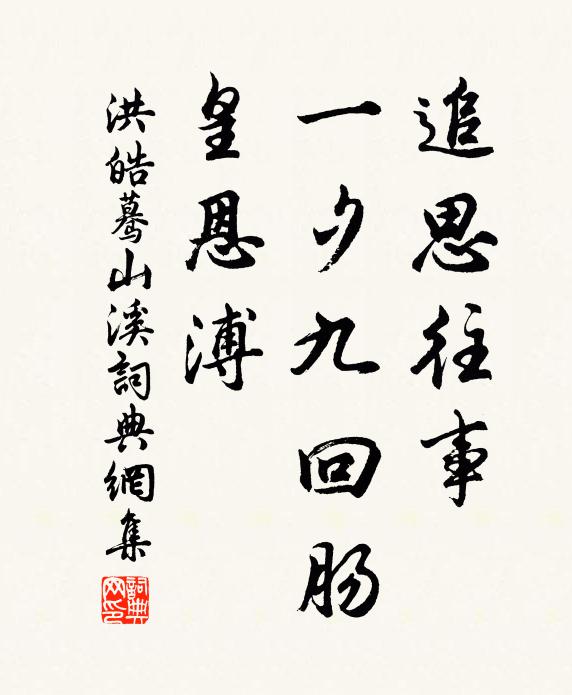 追思往事
一夕九回肠
皇恩溥
洪皓蓦山溪詞典網集
詞典網印